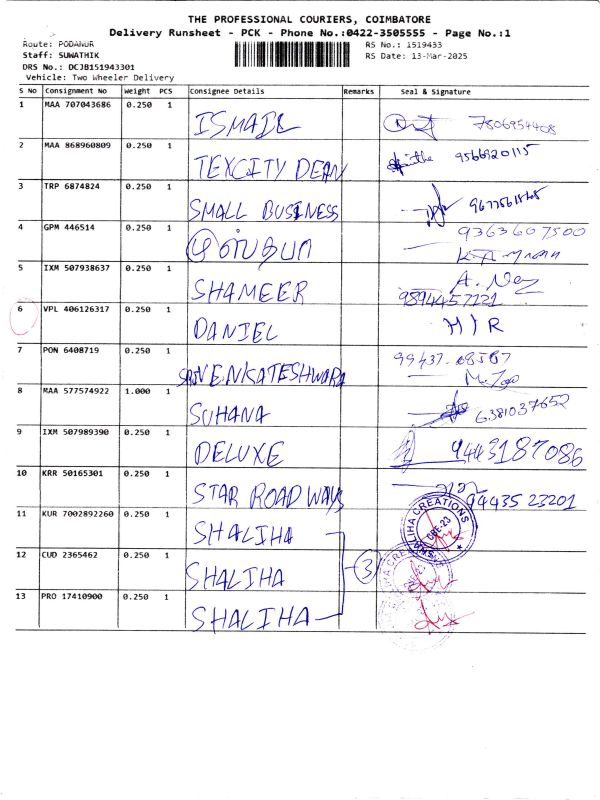 THE PROFESSIONAL COURIERS, COIMBATORE
Delivery Runsheet - PCK - Phone No.:0422-3505555 - Page No.:1
Route: PODANUR RS No.: 1519433
Staff: SUWATHIK RS Date: 13-Mar-2025
DRS No.: DCJB151943301
Vehicle: Two Wheeler Delivery
S No Consignment No Weight PCS Consignee Details Remarks Seal & Signature
1 MAA 707043686 0.250 1 ISMAIL 7806954408
2 MAA 868960809 0.250 1 TEXCITY DEAN 9566920115
3 TRP 6874824 0.250 1 SMALL BUSINESS
4 GPM 446514 0.250 1 9363607500
5 IXM 507938637 0.250 1 SHAMEER A. Nez
9894457121
6 VPL 406126317 0.250 1 DANIEL HIR
7 PON 6408719 0.250 1 SRI VENKATESHWARA
8 MAA 577574922 1.000 1 SUHANA 6381037652
9 IXM 507989390 0.250 1 DELUXE 9443187086
10 KRR 50165301 0.250 1 STAR ROAD WAYS 94435 23201
11 KUR 7002892260 0.250 1 SHALIHA SHALIHA CREATIONS CBE-23
12 CUD 2365462 0.250 1 SHALIHA 3
13 PRO 17410900 0.250 1 SHALIHA